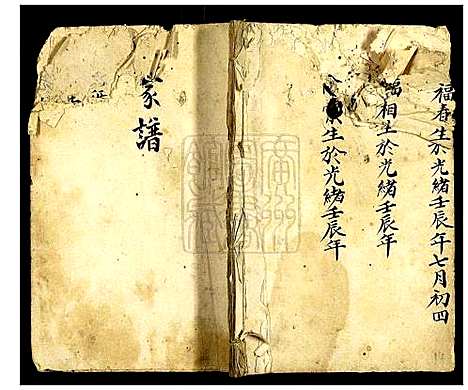 福春生於光緒壬辰年七月初四
福相生於光緒壬辰年
生於光緒壬辰年
家譜